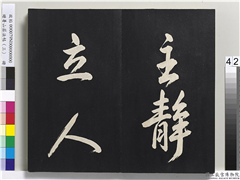 主靜
立人
42